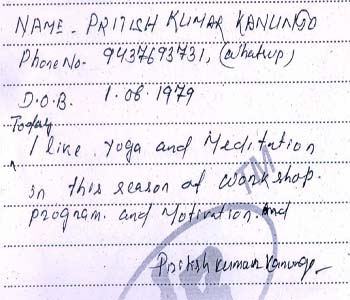 NAME - PRITISH KUMAR KANUNGO
Phone No- 9437693731, (Whatsup)
D.O.B. 1.08.1979
Today
I like Yoga and Meditation
in this season of workshop.
program. and Motivation. And
Pritish Kumar Kanungo
TM